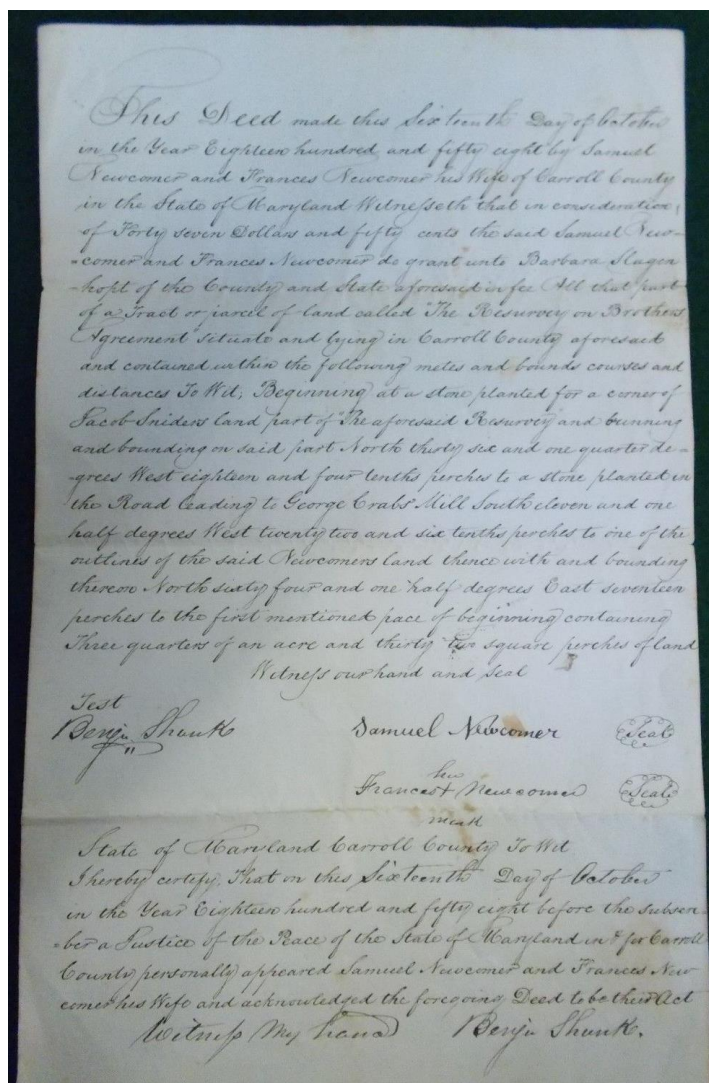 This Deed made this Sixteenth Day of October
in the Year Eighteen hundred and fifty eight by Samuel
Newcomer and Frances Newcomer his Wife of Carroll County
in the State of Maryland Witnesseth that in consideration
of Forty seven Dollars and fifty cents the said Samuel New-
-comer and Frances Newcomer do grant unto Barbara Slagen
-hopt of the County and State aforesaid in fee All that part
of a Tract or parcel of land called "The Resurvey on Brothers
Agreement situate and lying in Carroll County aforesaid
and contained within the following metes and bounds courses and
distances To Wit, Beginning at a stone planted for a corner of
Jacob Sniders land part of "The aforesaid Resurvey" and running
and bounding on said part North thirty six and one quarter de-
-grees West eighteen and four tenths perches to a stone planted in
the Road leading to George Crabs Mill South eleven and one
half degrees West twenty two and six tenths perches to one of the
outlines of the said Newcomers land thence with and bounding
thereon North sixty four and one half degrees East seventeen
perches to the first mentioned pace of beginning containing
Three quarters of an acre and thirty two square perches of land
Witness our hand and seal
Test
Benjn Shunk
Samuel Newcomer Seal
her
Frances + Newcomer Seal
mark
State of Maryland Carroll County To Wit
I hereby certify, That on this Sixteenth Day of October
in the Year Eighteen hundred and fifty eight before the subscri-
-ber a Justice of the Peace of the State of Maryland in & for Carroll
County personally appeared Samuel Newcomer and Frances New
comer his Wife and acknowledged the foregoing Deed to be their Act
Witness My hand Benjn Shunk.